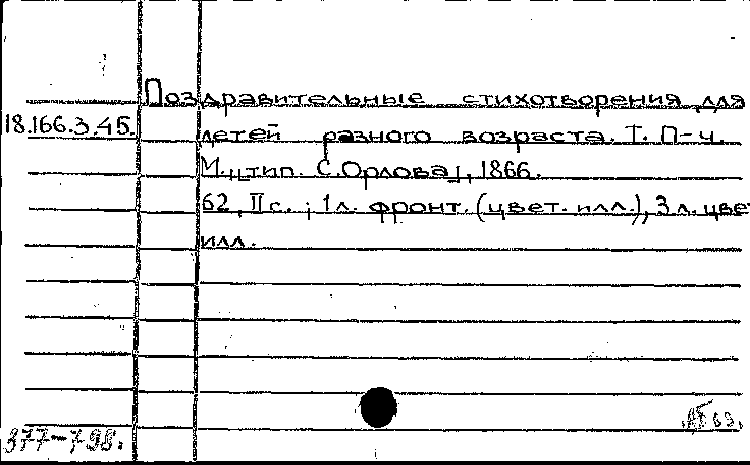 Поздравительные стихотворения для
18.166.3.45. детей разного возраста. Т. П-ч.
М., [тип. С. Орлова], 1866.
62, II с.; 1 л. фронт. (цвет. илл.), 3 л. цвет.
илл.
377-798.